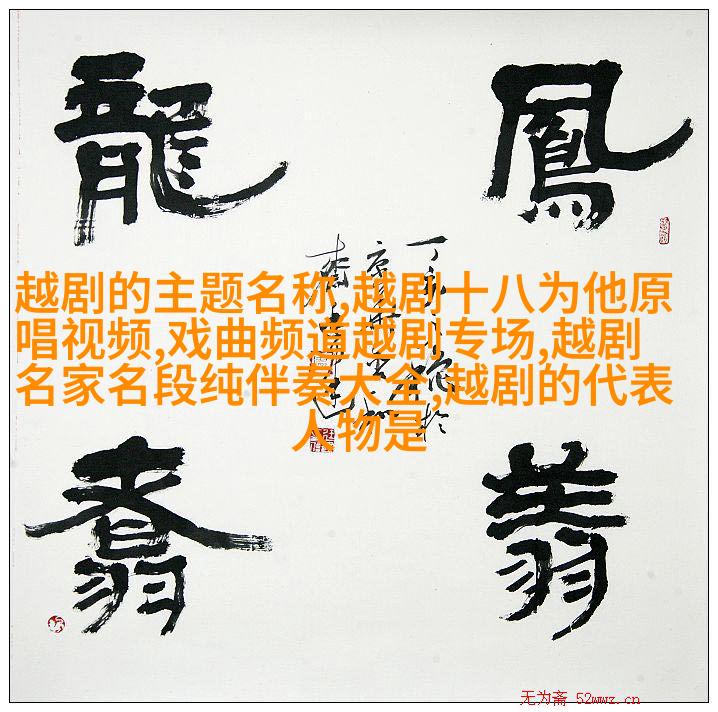 鳳
翔
龍
翥
越剧的主题名称,越剧十八为他原
唱视频,戏曲频道越剧专场,越剧
名家名段纯伴奏大全,越剧的代表
人物是
无为斋 52wwz.cn